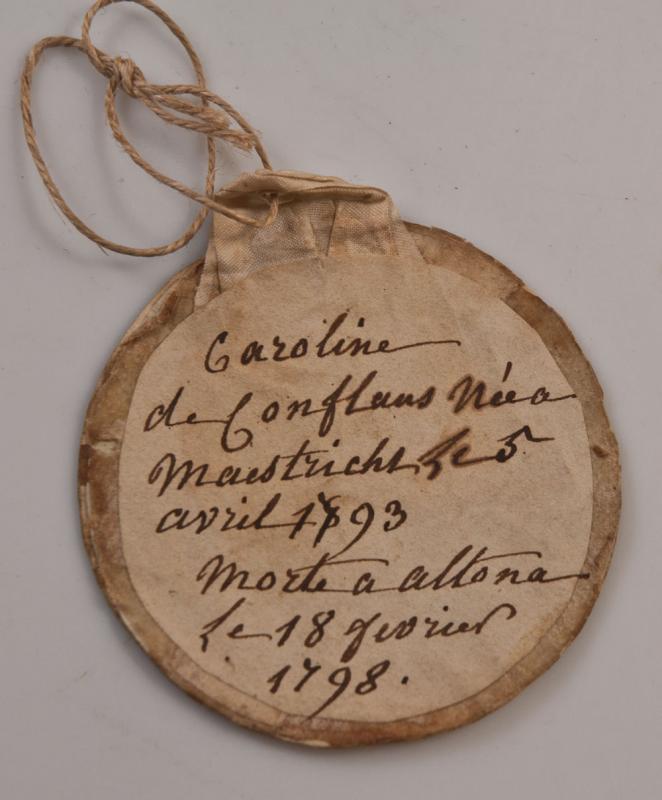 Caroline
de Conflans Née a
Maestricht le 5
avril 1793
Morte a altona
le 18 fevrier
1798.